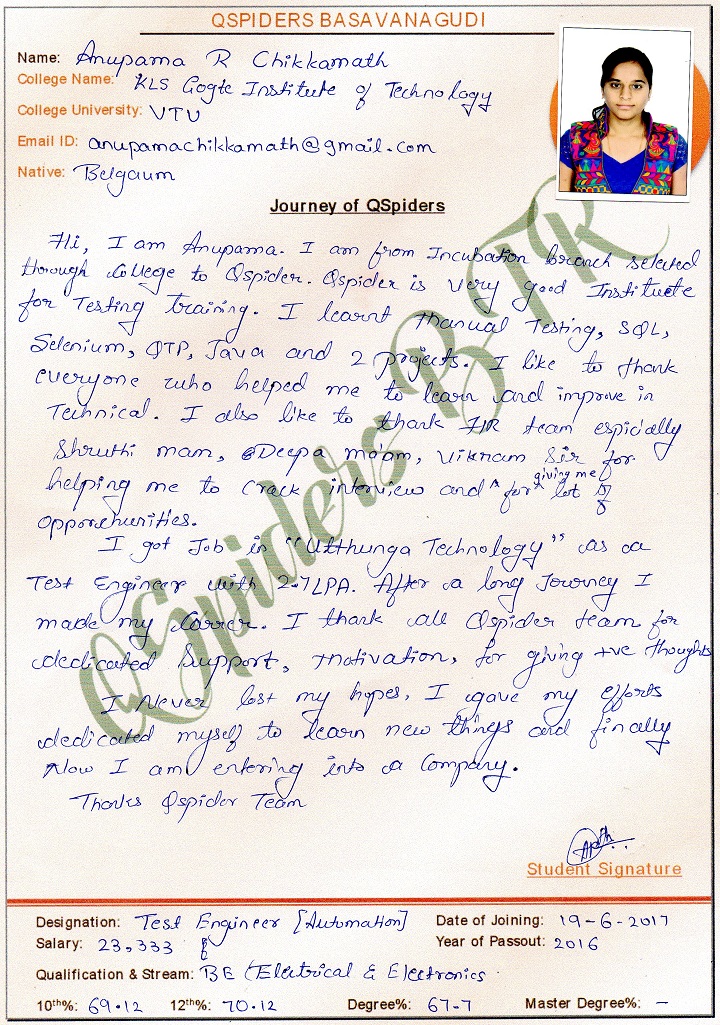 QSPIDERS BASAVANAGUDI
Name: Anupama R Chikkamath
College Name: KLS Gogte Institute of Technology
College University: VTU
Email ID: anupamachikkamath@gmail.com
Native: Belgaum
Journey of QSpiders
Hi, I am Anupama. I am from Incubation branch selected
through College to Qspider. Qspider is very good Institute
for Testing training. I learnt Manual Testing, SQL,
Selenium, QTP, Java and 2 projects. I like to thank
everyone who helped me to learn and improve in
Technical. I also like to thank HR team espicially
Shruthi mam, Deepa ma'am, Vikram Sir for
helping me to crack interview and for giving me lot of
opporchunities.
I got Job in "Utthunga Technology" as a
Test Engineer with 2.7 LPA. After a long Journey I
made my Carrer. I thank all Qspider team for
dedicated Support, motivation, for giving +ve thoughts
I Never lost my hopes, I gave my efforts
dedicated myself to learn new things and finally
Now I am entering into a Company.
Thanks Qspider Team
QSpiders BTR
Student Signature
Designation: Test Engineer [Automation] Date of Joining: 19-6-2017
Salary: 23,333 Year of Passout: 2016
Qualification & Stream: BE (Electrical & Electronics
10th%: 69.12 12th%: 70.12 Degree%: 67.7 Master Degree%: -